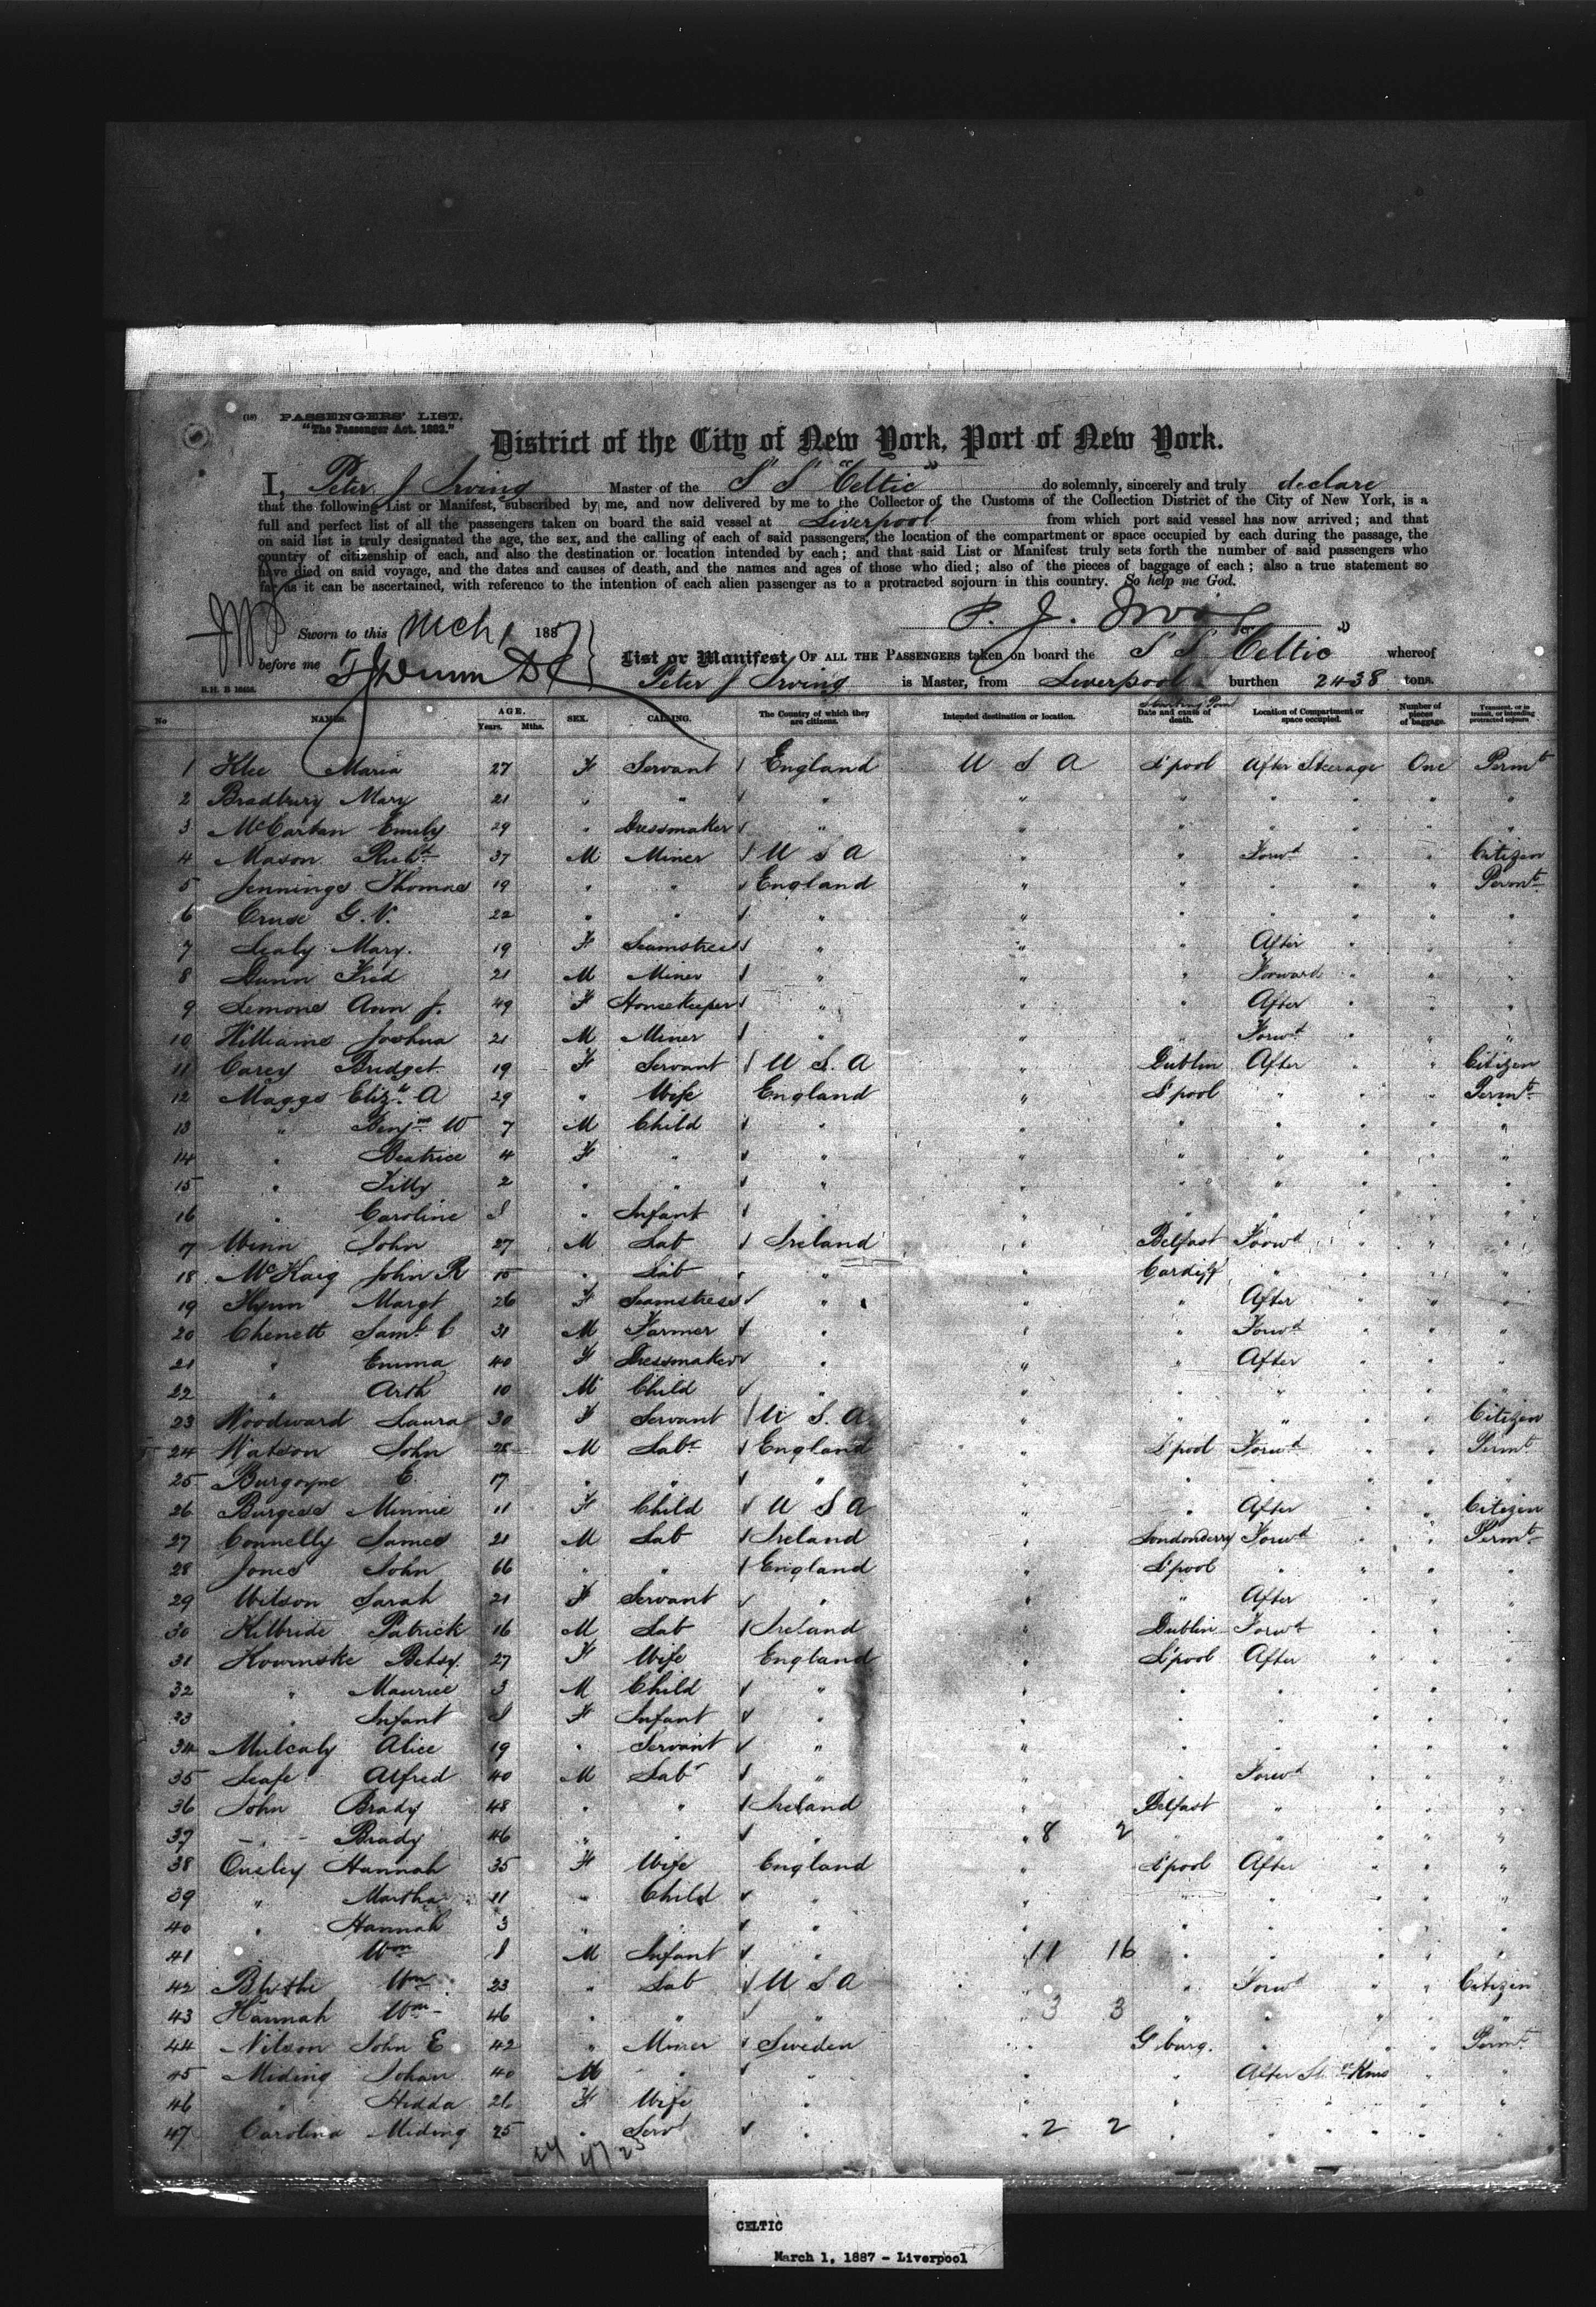 (18) PASSENGERS' LIST.
"The Passenger Act. 1882."
District of the City of New York, Port of New York.
I, Peter J Irving Master of the S S "Celtic" do solemnly, sincerely and truly declare
that the following List or Manifest, subscribed by me, and now delivered by me to the Collector of the Customs of the Collection District of the City of New York, is a
full and perfect list of all the passengers taken on board the said vessel at Liverpool from which port said vessel has now arrived; and that
on said list is truly designated the age, the sex, and the calling of each of said passengers, the location of the compartment or space occupied by each during the passage, the
country of citizenship of each, and also the destination or location intended by each; and that said List or Manifest truly sets forth the number of said passengers who
have died on said voyage, and the dates and causes of death, and the names and ages of those who died; also of the pieces of baggage of each; also a true statement so
far as it can be ascertained, with reference to the intention of each alien passenger as to a protracted sojourn in this country. So help me God.
P. J. Irving
Sworn to this Mch 1 1887
before me
List or Manifest OF ALL THE PASSENGERS taken on board the S S "Celtic" whereof
Peter J Irving is Master, from Liverpool burthen 2438 tons.
No NAMES. AGE. Years. Mths. SEX. CALLING. The Country of which they are citizens. Intended destination or location. Date and cause of death. Location of Compartment or space occupied. Number of pieces of baggage. Transient, or in transit, or intending protracted sojourn
1 Klee Maria 27 F Servant England U S A L'pool After Steerage One Permt
2 Bradbury Mary 21 " " " " " " " " "
3 McCartan Emily 29 " Dressmaker " " " " " "
4 Mason Richd 37 M Miner U S A " " Forwd " " Citizen
5 Jennings Thomas 19 " " England " " " " " Permt
6 Cruse G. V. 22 " " " " " " " " "
7 Lealy Mary. 19 F Seamstress " " " After " " "
8 Dunn Fred 21 M Miner " " " Forward " " "
9 Lemons Ann J. 49 F Housekeeper " " " After " " "
10 Williams Joshua 21 M Miner " " " Forwd " " "
11 Carey Bridget 19 F Servant U S. A " Dublin After " " Citizen
12 Maggs Elizth A 29 " Wife England " L'pool " " " Permt
13 " Benjmn W 7 M Child " " " " " " "
14 " Beatrice 4 F " " " " " " " "
15 " Tilly 2 " " " " " " " " "
16 " Caroline " Infant " " " " " " "
7 Winn John 27 M Lab Ireland " Belfast Forwd " " "
18 McKaig John R 15 " Lab " " Cardiff " " " "
19 Flynn Margt 26 F Seamstress " " " After " " "
20 Chenett Saml C 31 M Farmer " " " Forwd " " "
21 " Emma 40 F Dressmaker " " " After " " "
22 " Arth 10 M Child " " " " " " "
23 Woodward Laura 30 F Servant U S. A. " " " " " Citizen
24 Watson John 28 M Labr England " L'pool Forwd " " Permt
25 Burgoyne E. 17 " " " " " " " " "
26 Burgess Minnie 11 F Child U S A " " After " " Citizen
27 Connelly James 21 M Lab Ireland " Londonderry Forwd " " Permt
28 Jones John 66 " " England " L'pool " " " "
29 Wilson Sarah 21 F Servant " " " After " " "
30 Kilbride Patrick 16 M Lab Ireland " Dublin Forwd " " "
31 Kowinske Betsy. 27 F Wife England " L'pool After " " "
32 " Maurice 3 M Child " " " " " " "
33 " Infant F Infant " " " " " " "
34 Mulcaly Alice 19 " Servant " " " " " " "
35 Leafe Alfred 40 M Labr " " " Forwd " " "
36 John Brady 48 " " Ireland " Belfast " " " "
37 - " - Brady 46 " " " " 8 2 " " " " "
38 Ousley Hannah 35 F Wife England " L'pool After " " "
39 " Martha 11 " Child " " " " " " "
40 " Hannah 3 " " " " " " " " "
41 " Wm M Infant " " 11 16 " " " " "
42 Blythe Wm 23 " Lab U S A " " Forwd " " Citizen
43 Hannah Wm 46 " " " " 3 3 " " " " "
44 Nilson John E 42 " Miner Sweden " G'burg. " " " Permt
45 Miding Johan 40 M " " " " After St Rms " "
46 " Hedda 26 F Wife " " " " " " "
47 Carolina Miding 25 " Servt " " 2 2 " " " " "
CELTIC
March 1, 1887 - Liverpool